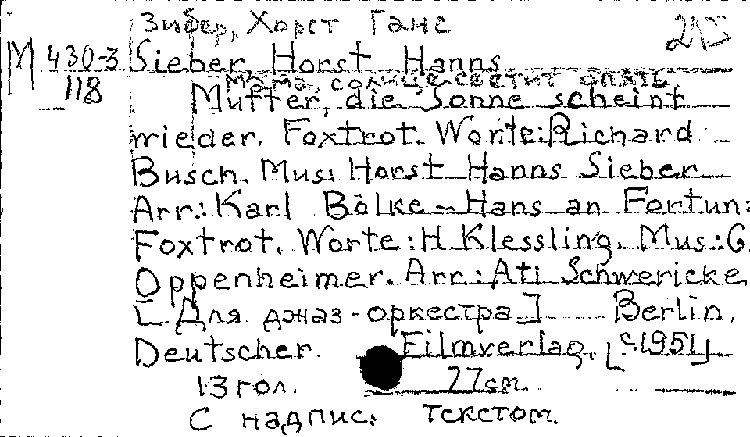 Зибер, Хорст Ганс
М 430-3 Sieber, Horst Hanns
118 Мама, солнце светит опять
Mutter, die Sonne scheint
wieder. Foxtrot. Worte: Richard
Busch. Mus: Horst Hanns Sieber
Arr.: Karl Bölke - Hans an Fortuna
Foxtrot. Worte: H Klessling. Mus.: G.
Oppenheimer. Arr.: Ati Schwericke
[Для джаз-оркестра] Berlin,
Deutscher. Filmverlag, [c1951]
13 гол. 27 cm.
С надпис. текстом.